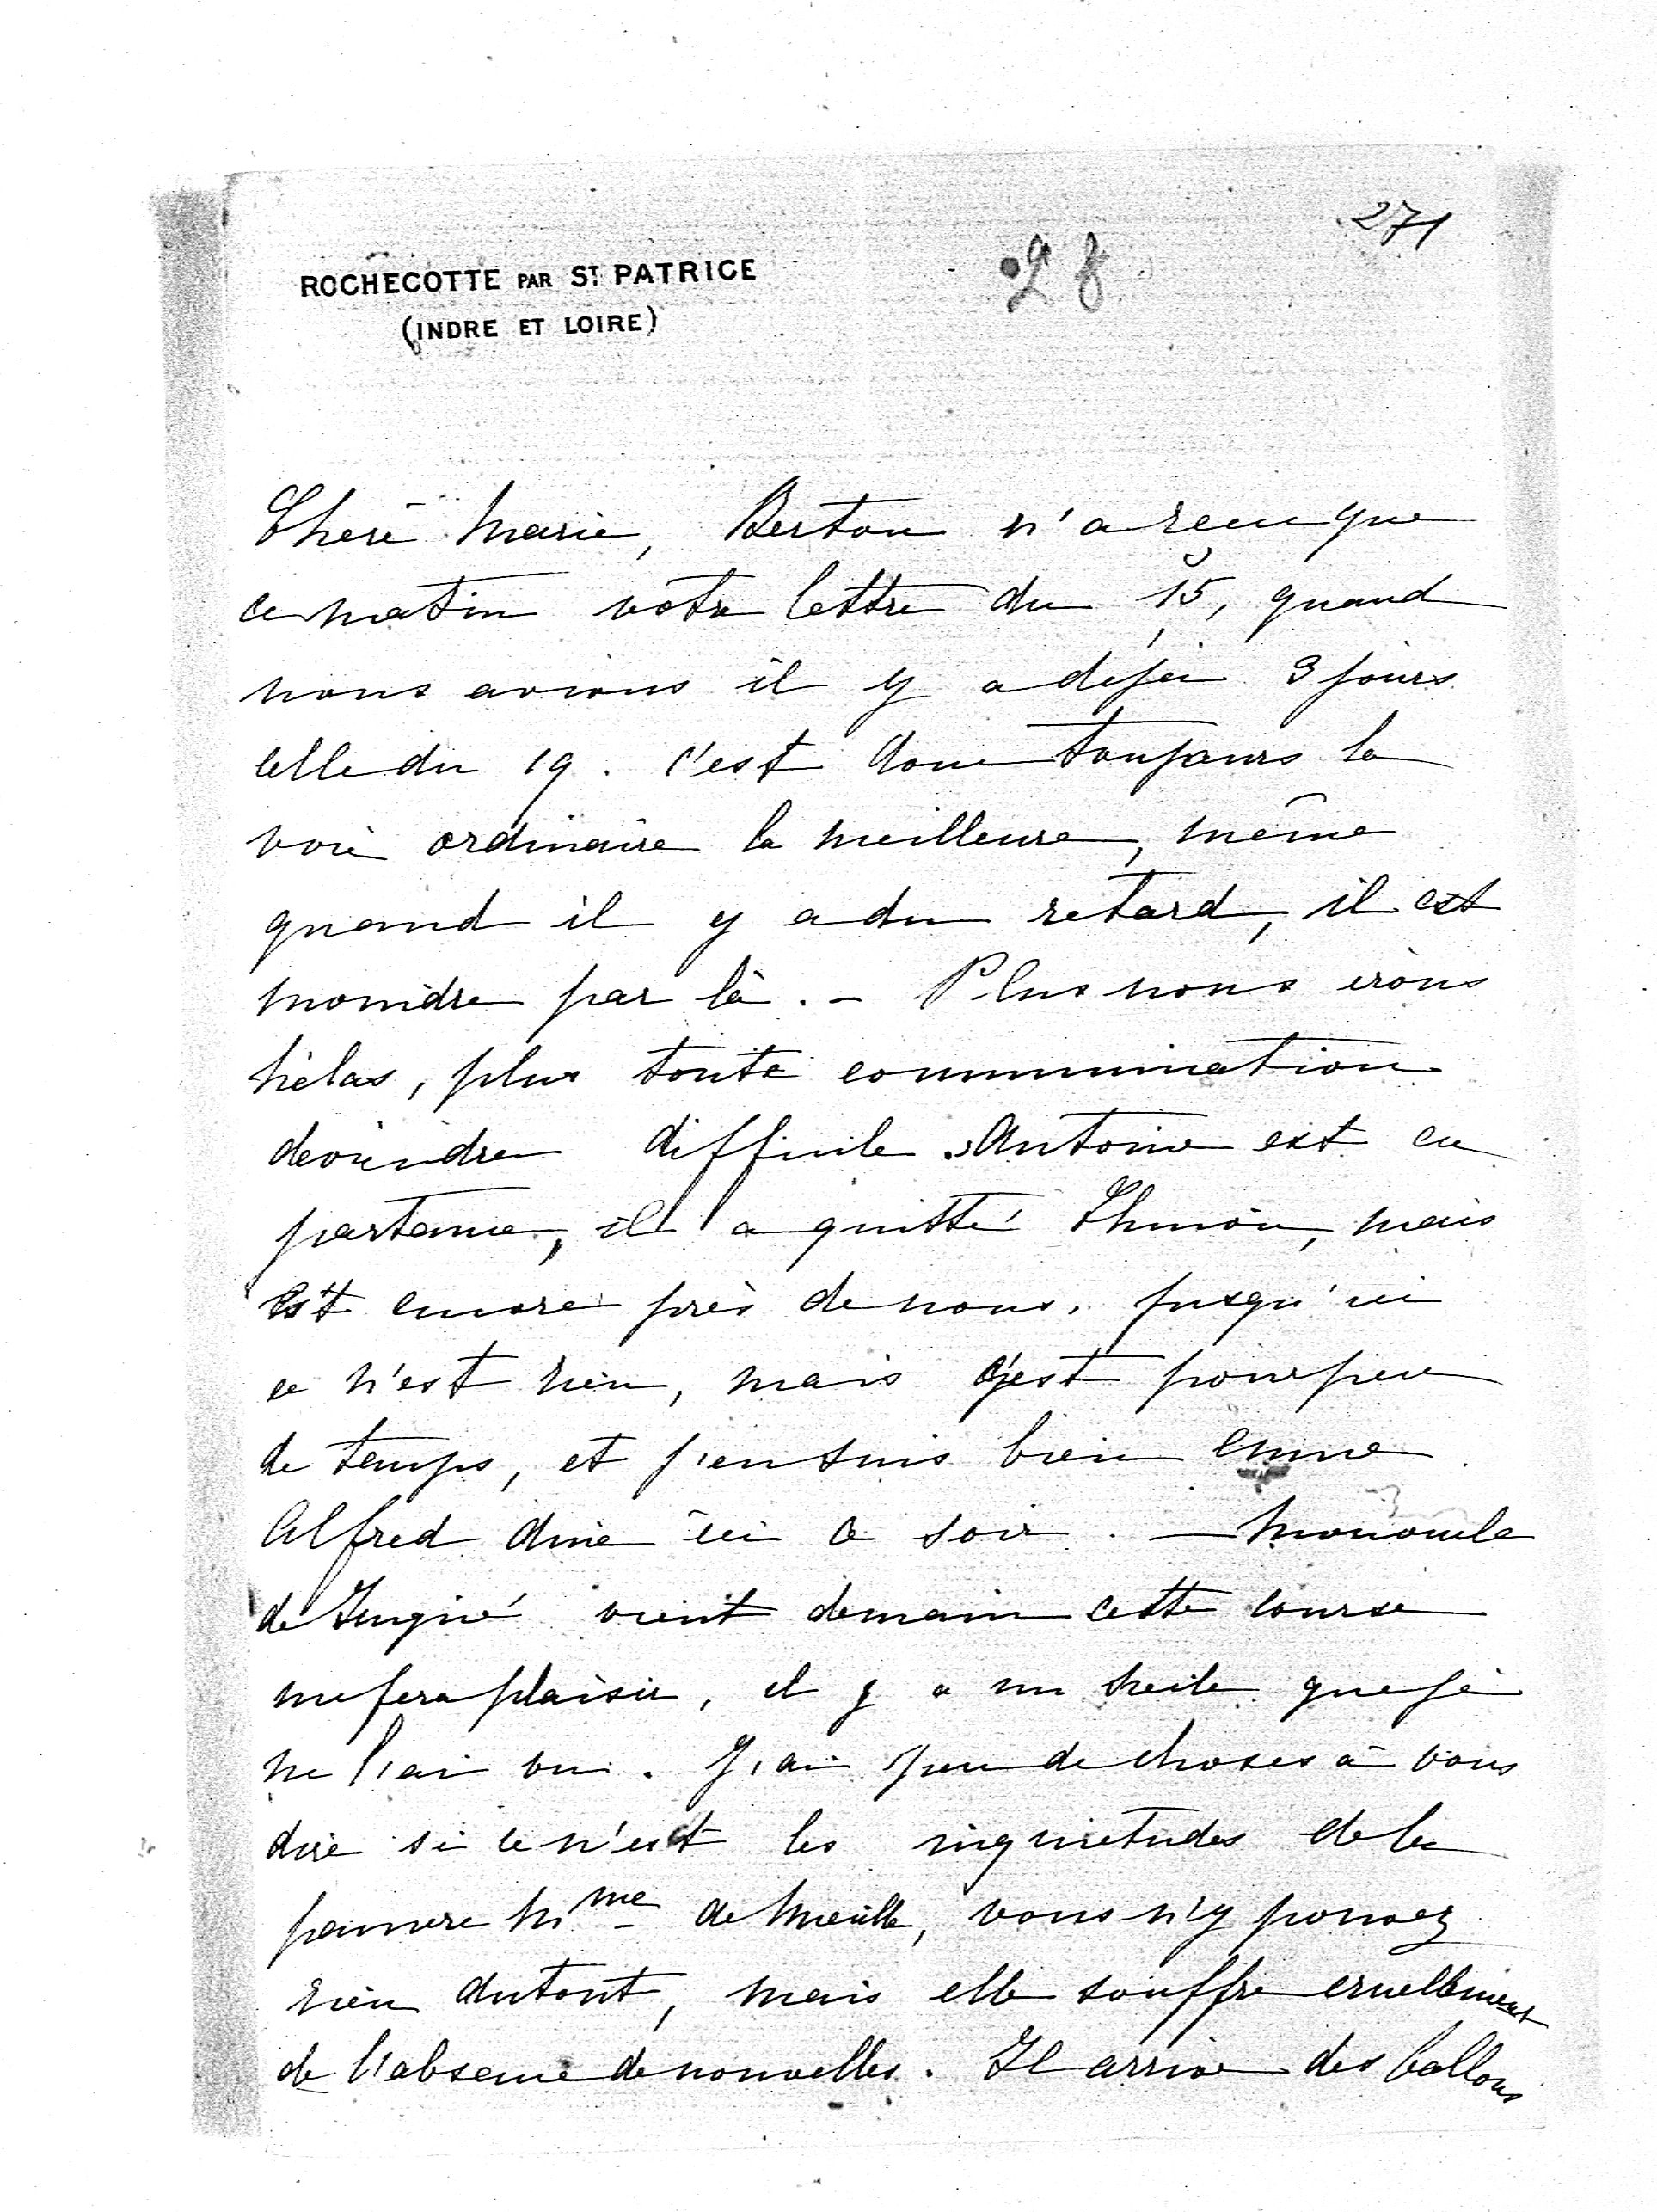 271
28
ROCHECOTTE PAR ST PATRICE
(INDRE ET LOIRE)
Chère Marie, Berton n'a reçu que
ce matin votre lettre du 15, quand
nous avions il y a déjà 3 jours
celle du 19. C'est donc toujours la
voie ordinaire la meilleure, même
quand il y a du retard, il est
moindre par là. – Plus nous irons
hélas, plus toute communication
deviendra difficile. Antoine est en
partance, il a quitté Chinon, mais
est encore près de nous. Jusqu'ici
ce n'est rien, mais c'est pour peu
de temps, et j'en suis bien émue.
Alfred dine ici ce soir. — Mon oncle
de vient demain cette course
me fera plaisir, il y a un siècle que je
ne l'ai vu. J'ai peu de choses à vous
dire si ce n'est les inquiétudes de la
pauvre Mme de vous n'y pouvez
rien du tout, mais elle souffre cruellement
de l'absence de nouvelles. Il arrive des ballons